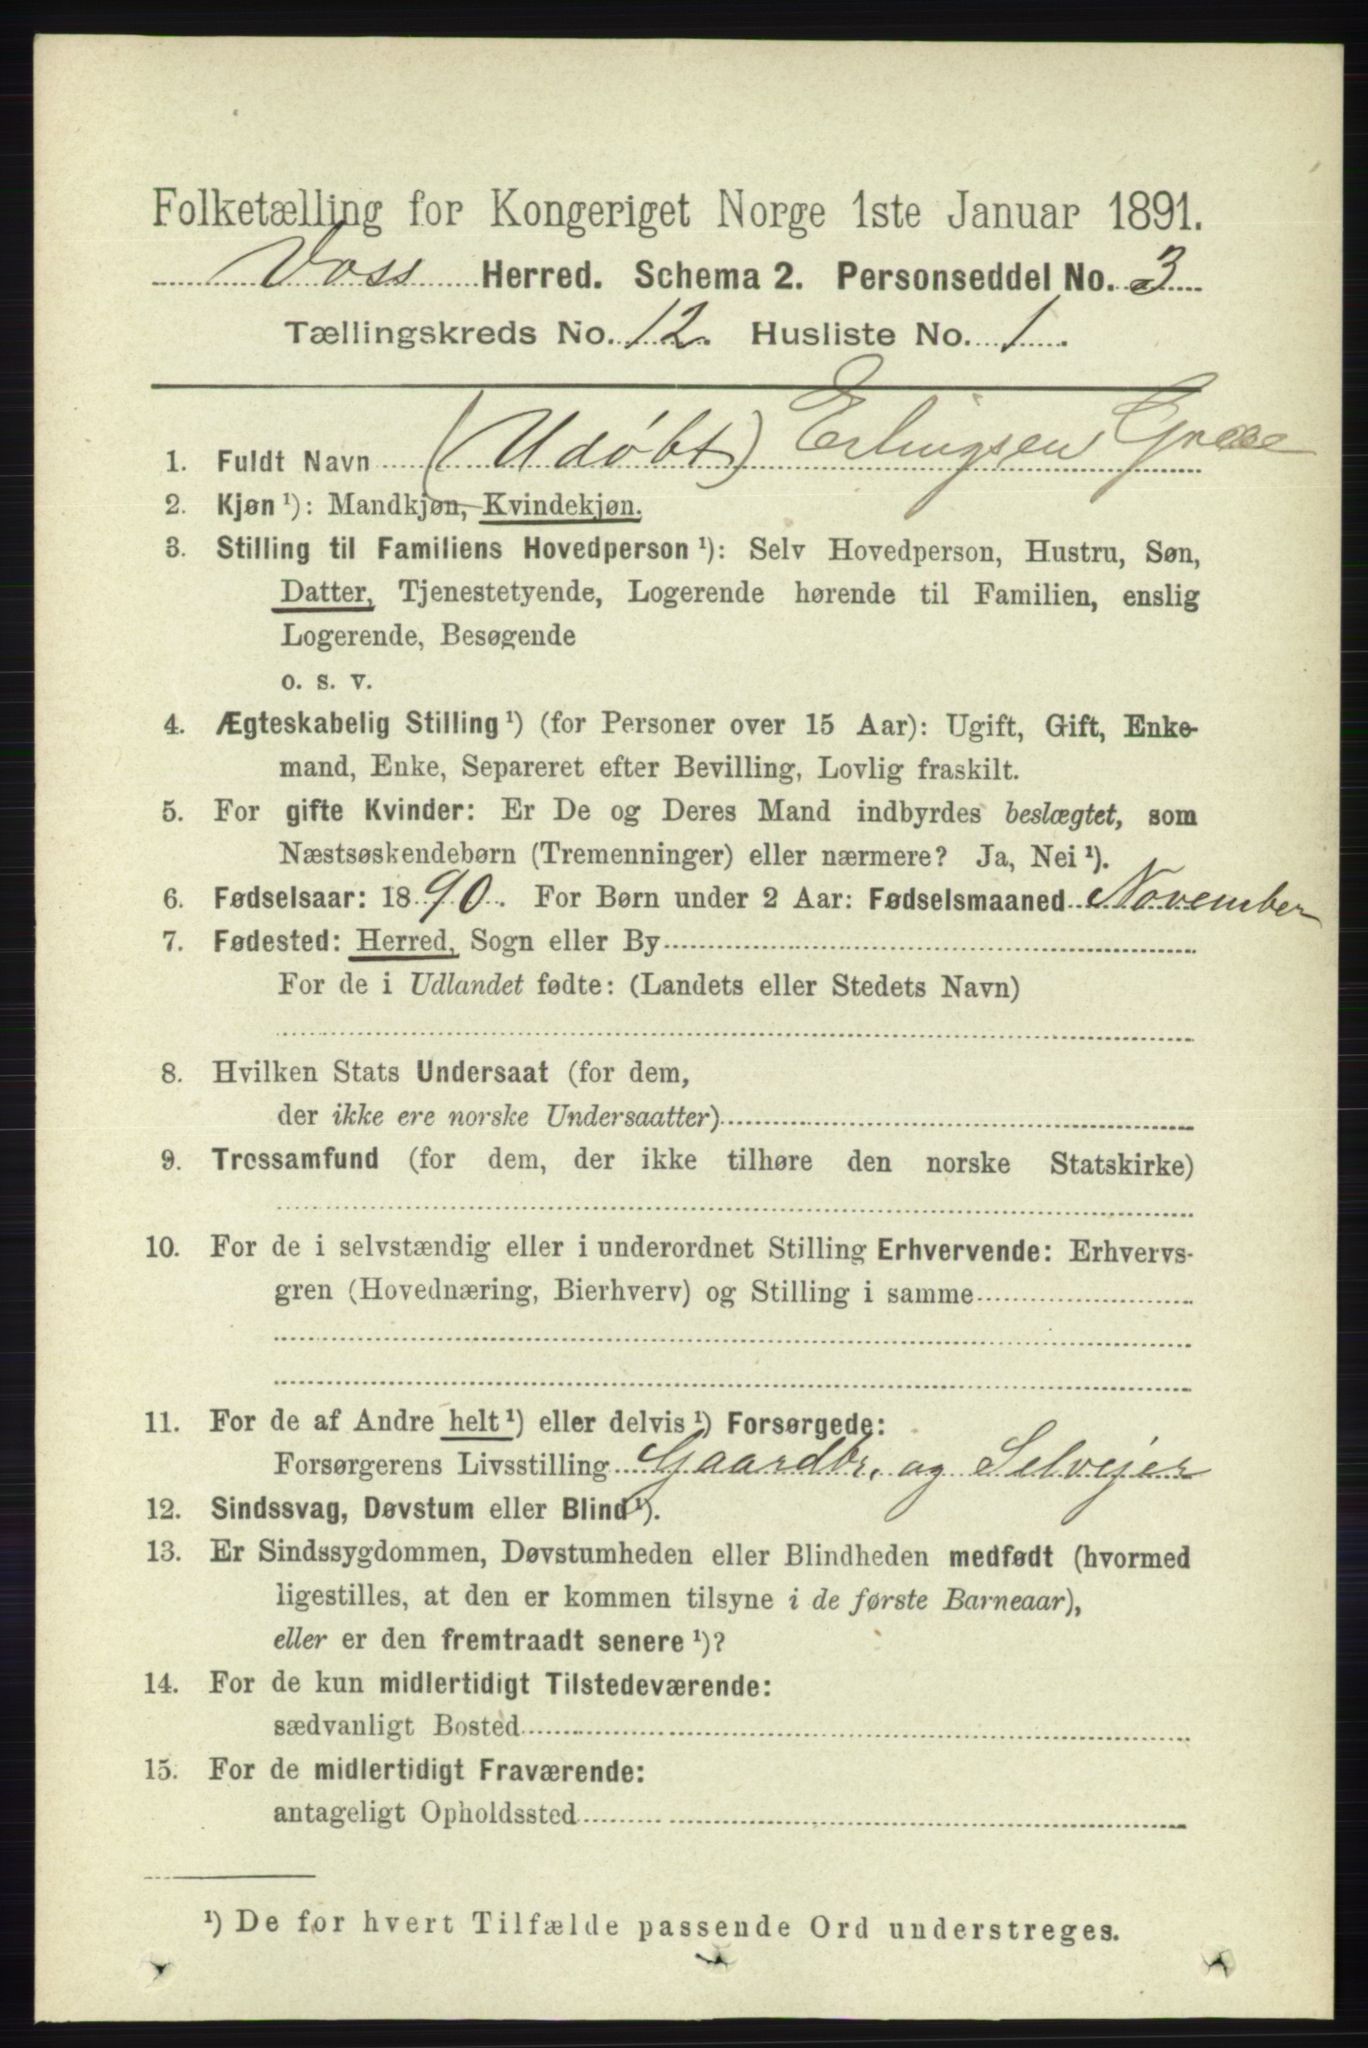 Folketælling for Kongeriget Norge 1ste Januar 1891.
Voss Herred. Schema 2. Personseddel No. 3
Tællingskreds No. 12. Husliste No. 1.
1. Fuldt Navn (Udøbt) Erlingsen
2. Kjøn ¹): Mandkjøn, Kvindekjøn.
3. Stilling til Familiens Hovedperson ¹): Selv Hovedperson, Hustru, Søn,
Datter, Tjenestetyende, Logerende hørende til Familien, enslig
Logerende, Besøgende
o. s. v.
4. Ægteskabelig Stilling ¹) (for Personer over 15 Aar): Ugift, Gift, Enke-
mand, Enke, Separeret efter Bevilling, Lovlig fraskilt.
5. For gifte Kvinder: Er De og Deres Mand indbyrdes beslægtet, som
Næstsøskendebørn (Tremenninger) eller nærmere? Ja, Nei ¹).
6. Fødselsaar: 1890. For Børn under 2 Aar: Fødselsmaaned November
7. Fødested: Herred, Sogn eller By
For de i Udlandet fødte: (Landets eller Stedets Navn)
8. Hvilken Stats Undersaat (for dem,
der ikke ere norske Undersaatter)
9. Trossamfund (for dem, der ikke tilhøre den norske Statskirke)
10. For de i selvstændig eller i underordnet Stilling Erhvervende: Erhvervs-
gren (Hovednæring, Bierhverv) og Stilling i samme
11. For de af Andre helt ¹) eller delvis ¹) Forsørgede:
Forsørgerens Livsstilling Gaardbr. og Selvejer
12. Sindssvag, Døvstum eller Blind ¹).
13. Er Sindssygdommen, Døvstumheden eller Blindheden medfødt (hvormed
ligestilles, at den er kommen tilsyne i de første Barneaar),
eller er den fremtraadt senere ¹)?
14. For de kun midlertidigt Tilstedeværende:
sædvanligt Bosted
15. For de midlertidigt Fraværende:
antageligt Opholdssted
¹) De for hvert Tilfælde passende Ord understreges.